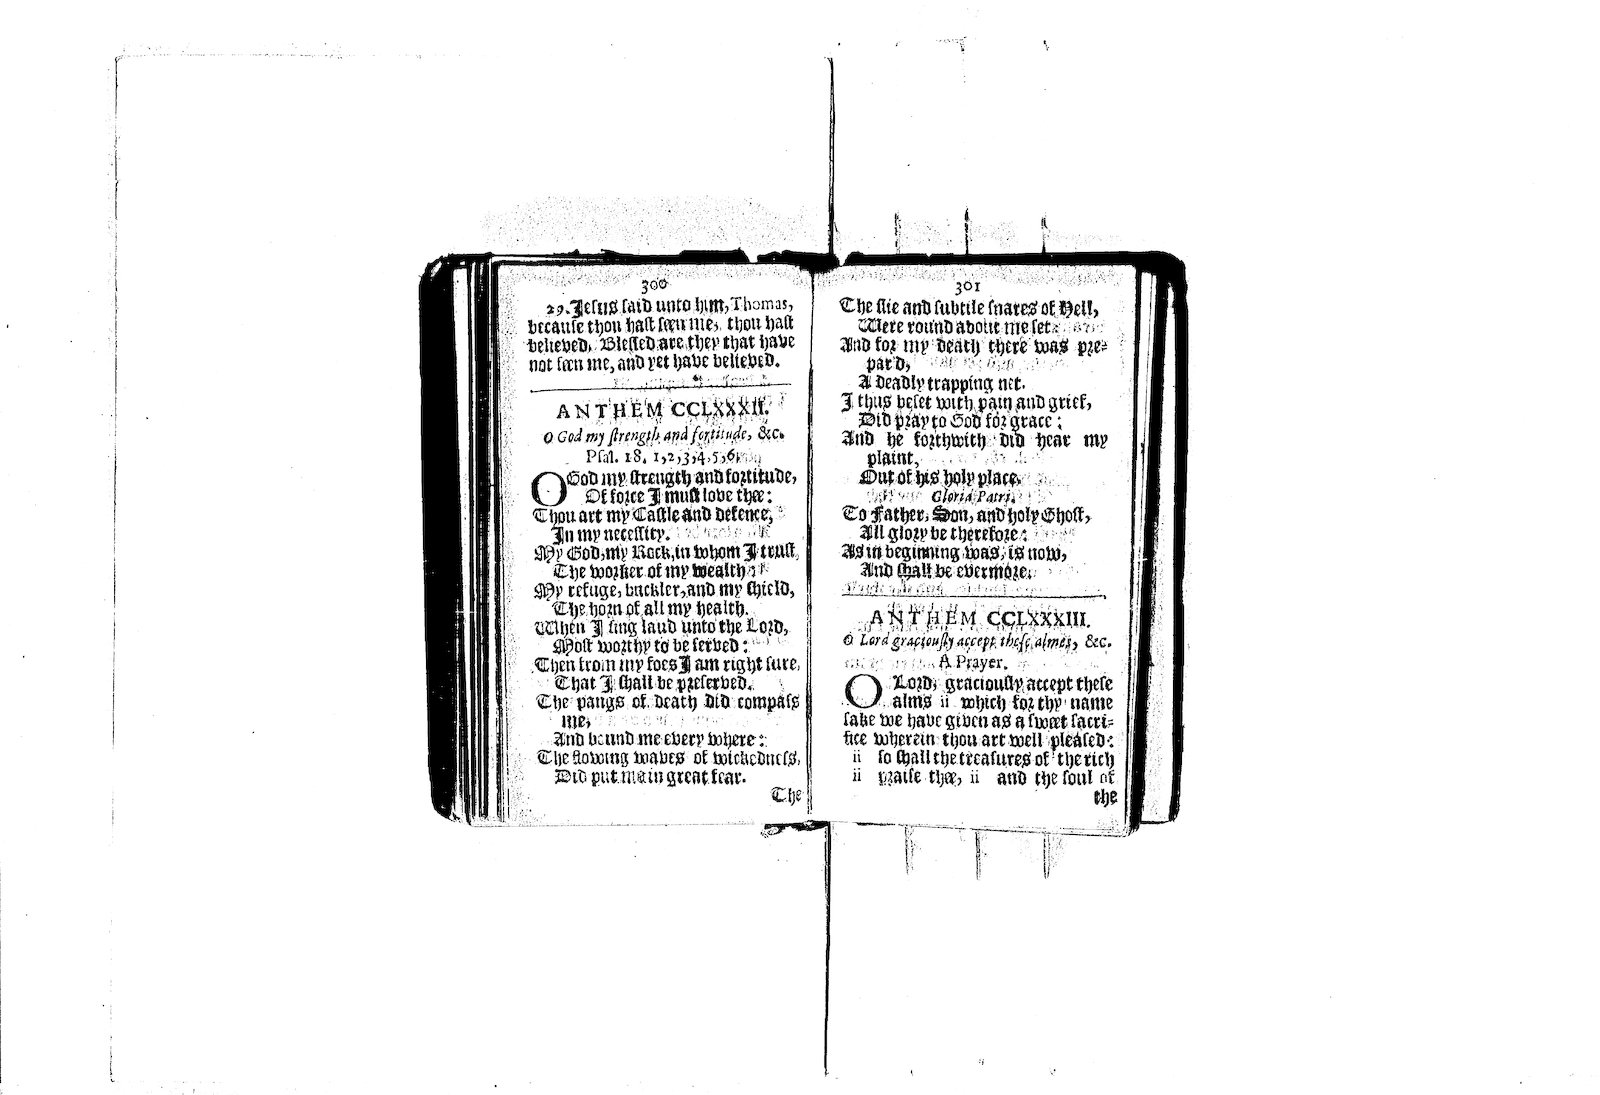 300
29. Jesus said unto him, Thomas,
because thou hast seen me, thou hast
believed, Blessed are they that have
not seen me, and yet have believed.
ANTHEM CCLXXXII.
O God my strength and fortitude, &c.
Psal. 18. 1,2,3,4,5,6,
O God my strength and fortitude,
Of force I must love thee:
Thou art my Castle and defence,
In my necessity.
My God, my Rock, in whom I trust,
The worker of my wealth
My refuge, buckler, and my shield,
The horn of all my health.
When I sing laud unto the Lord,
Most worthy to be served:
Then from my foes I am right sure,
That I shall be preserved.
The pangs of death did compass
me,
And bound me every where:
The flowing waves of wickedness,
Did put me in great fear.
The
301
The slie and subtile snares of Hell,
Were round about me set
And for my death there was pre-
par'd,
A deadly trapping net.
I thus beset with pain and grief,
Did pray to God for grace:
And he forthwith did hear my
plaint,
Out of his holy place.
Gloria Patri.
To Father, Son, and holy Ghost,
All glory be therefore:
As in beginning was, is now,
And shall be evermore.
ANTHEM CCLXXXIII.
O Lord graciously accept these almes, &c.
A Prayer.
O Lord, graciously accept these
alms ii which for thy name
sake we have given as a sweet sacri-
fice wherein thou art well pleased:
ii so shall the treasures of the rich
ii praise thee, ii and the soul of
the